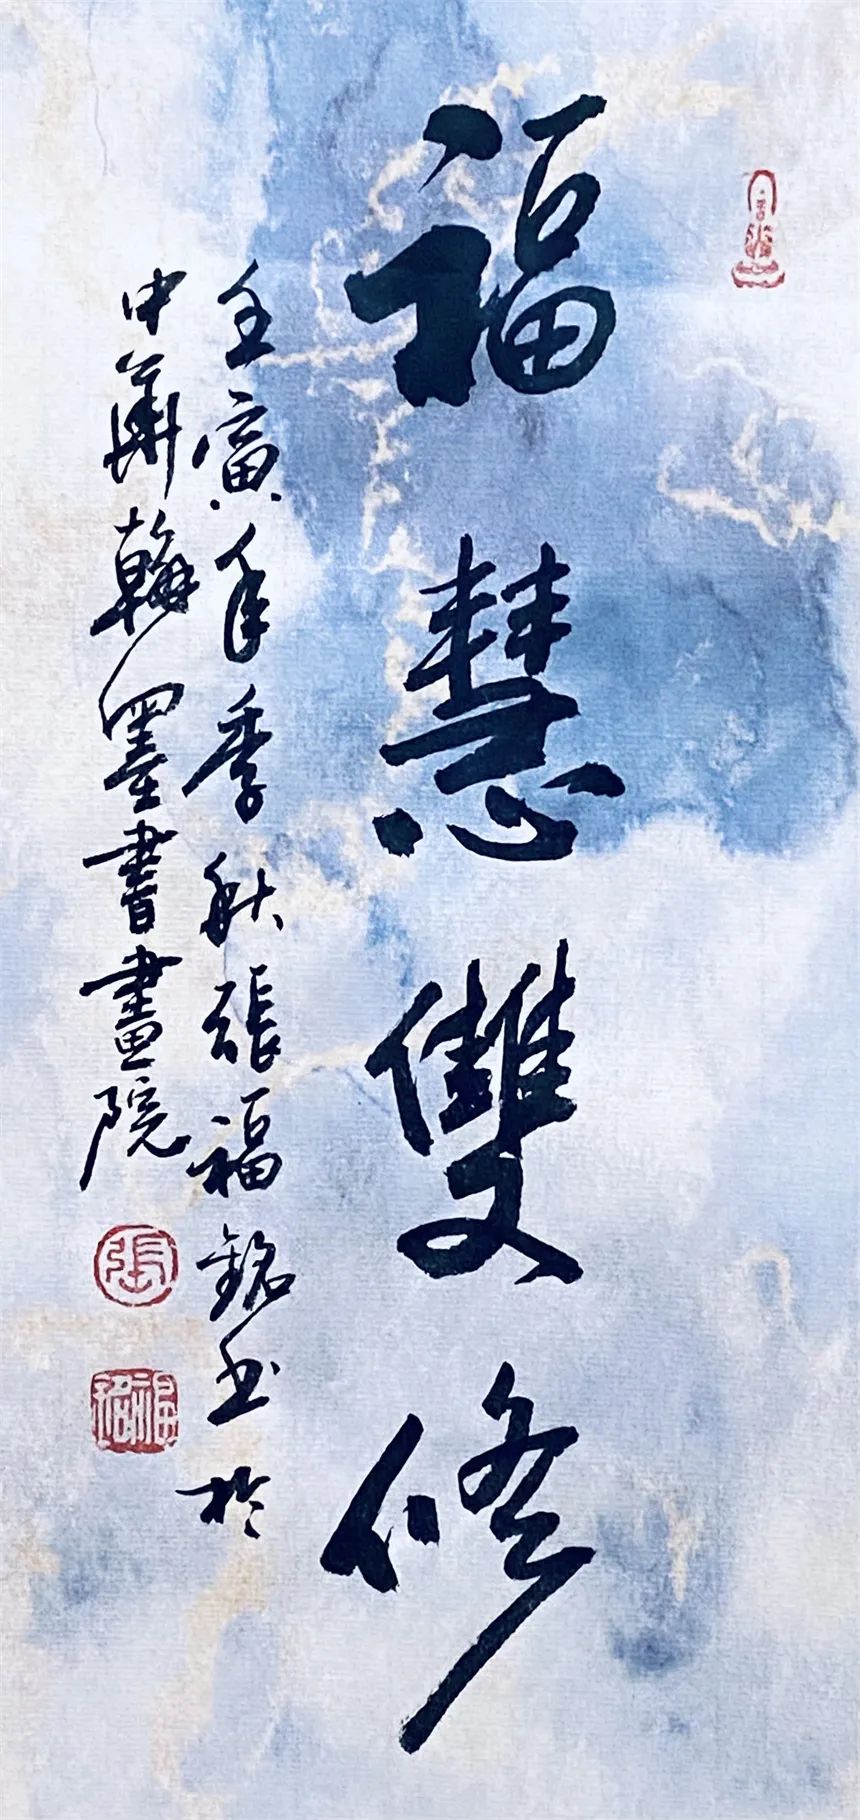 福慧雙修
壬寅年季秋張福銘書於
中華翰墨書畫院
張
福銘